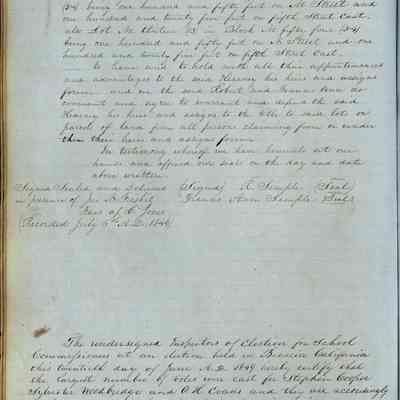 (34) being one hundred and fifty feet on M Street and
one hundred and twenty five feet on fifth Street East.
also Lot No thirteen 13 in Block No fifty four (54)
being one hundred and fifty feet on Street and one
hundred and twenty five feet on fifth Street East.
to have and to hold with all their appurtenances
and advantages to the said Hearny his heirs and assigns
forever and we the said Robert and Frances Ann do
covenant and agree to warrant and defend the said
Hearny his heirs and assigns to the title to said lots or
parcels of land from all persons claiming from or under
them their heirs and assigns forever
In testimony whereof we have hereunto set our
hands and affixed our seals on the day and date
above written.
Signed Sealed and Delivered (Signed) R. Semple (Seal)
in presence of Jno B. Frisbie Frances Ann Semple (Seal)
Recorded July 6th A.D. 1849
The undersigned Inspectors of Election for School
Commissioners at an election held in Benicia California
this twentieth day of June A.D. 1849 hereby certify that
the largest number of votes were cast for Stephen Cooper
Sylvester Woodbridge and C H Cooke and they are accordingly